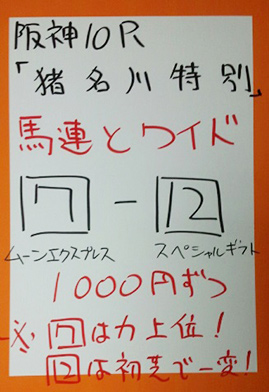 阪神10R
「猪名川特別」
馬連とワイド
7 - 12
ムーンエクスプレス スペシャルギフト
1000円ずつ
※7は力上位!
12は初芝で一変!